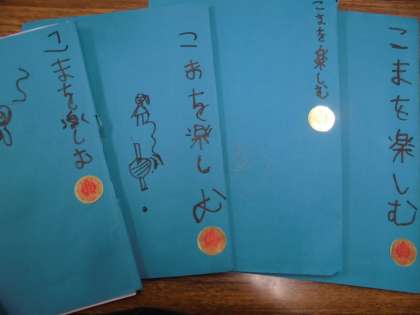 こまを楽しむ
こまを楽しむ
こまを楽しむ
こまを楽しむ